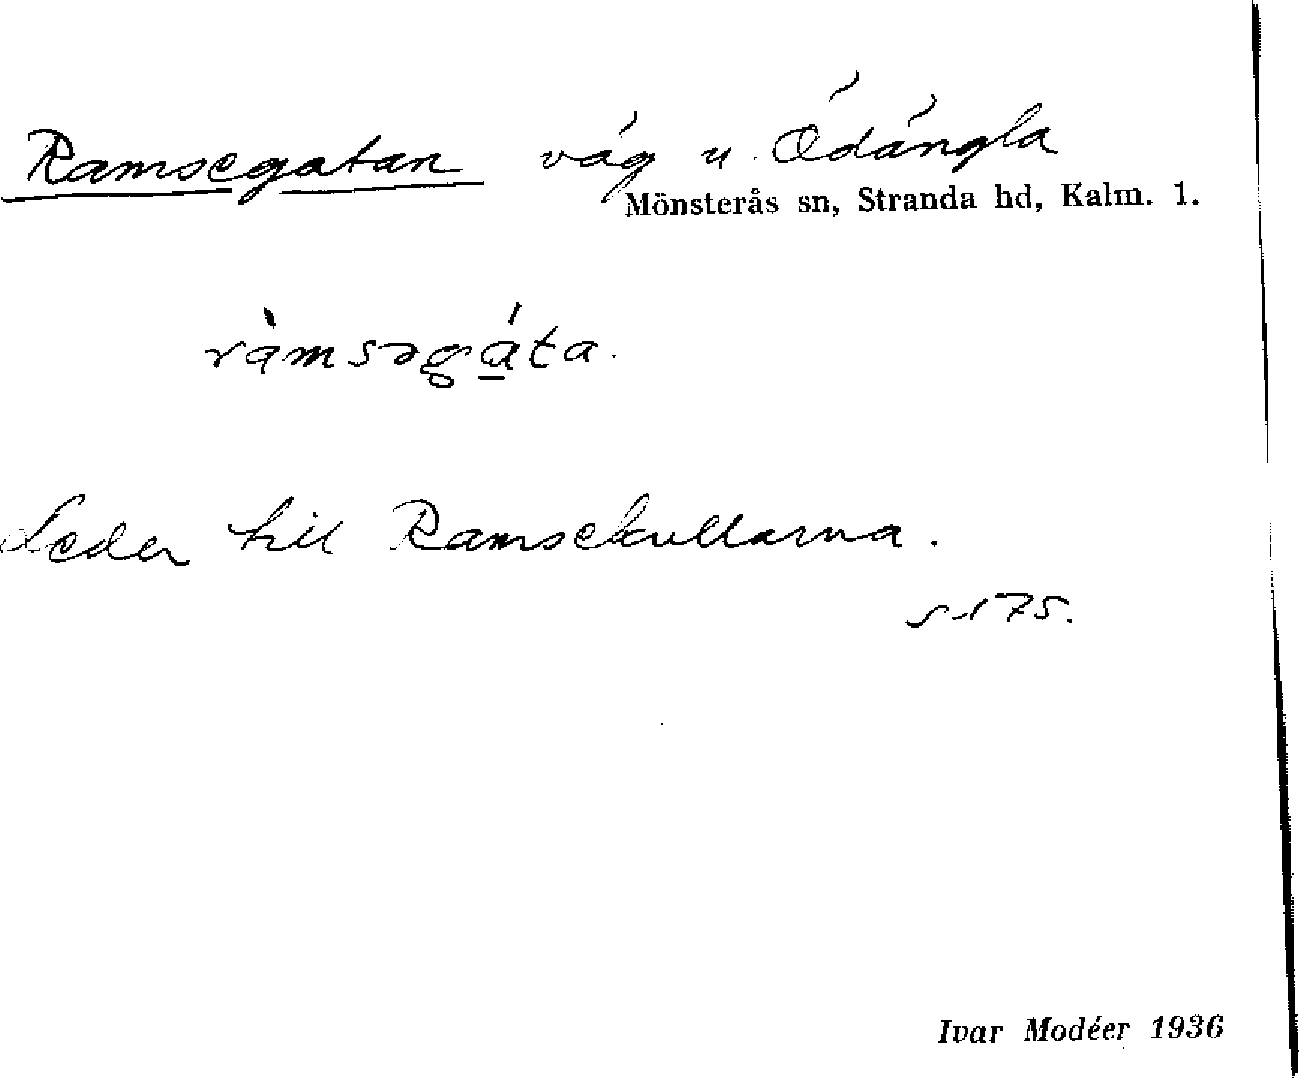 Ramsegatan väg u. Ödängla
Mönsterås sn, Stranda hd, Kalm. l.
ràmsəgáta.
Leder till Ramsekullarna.
s. 175.
Ivar Modéer 1936